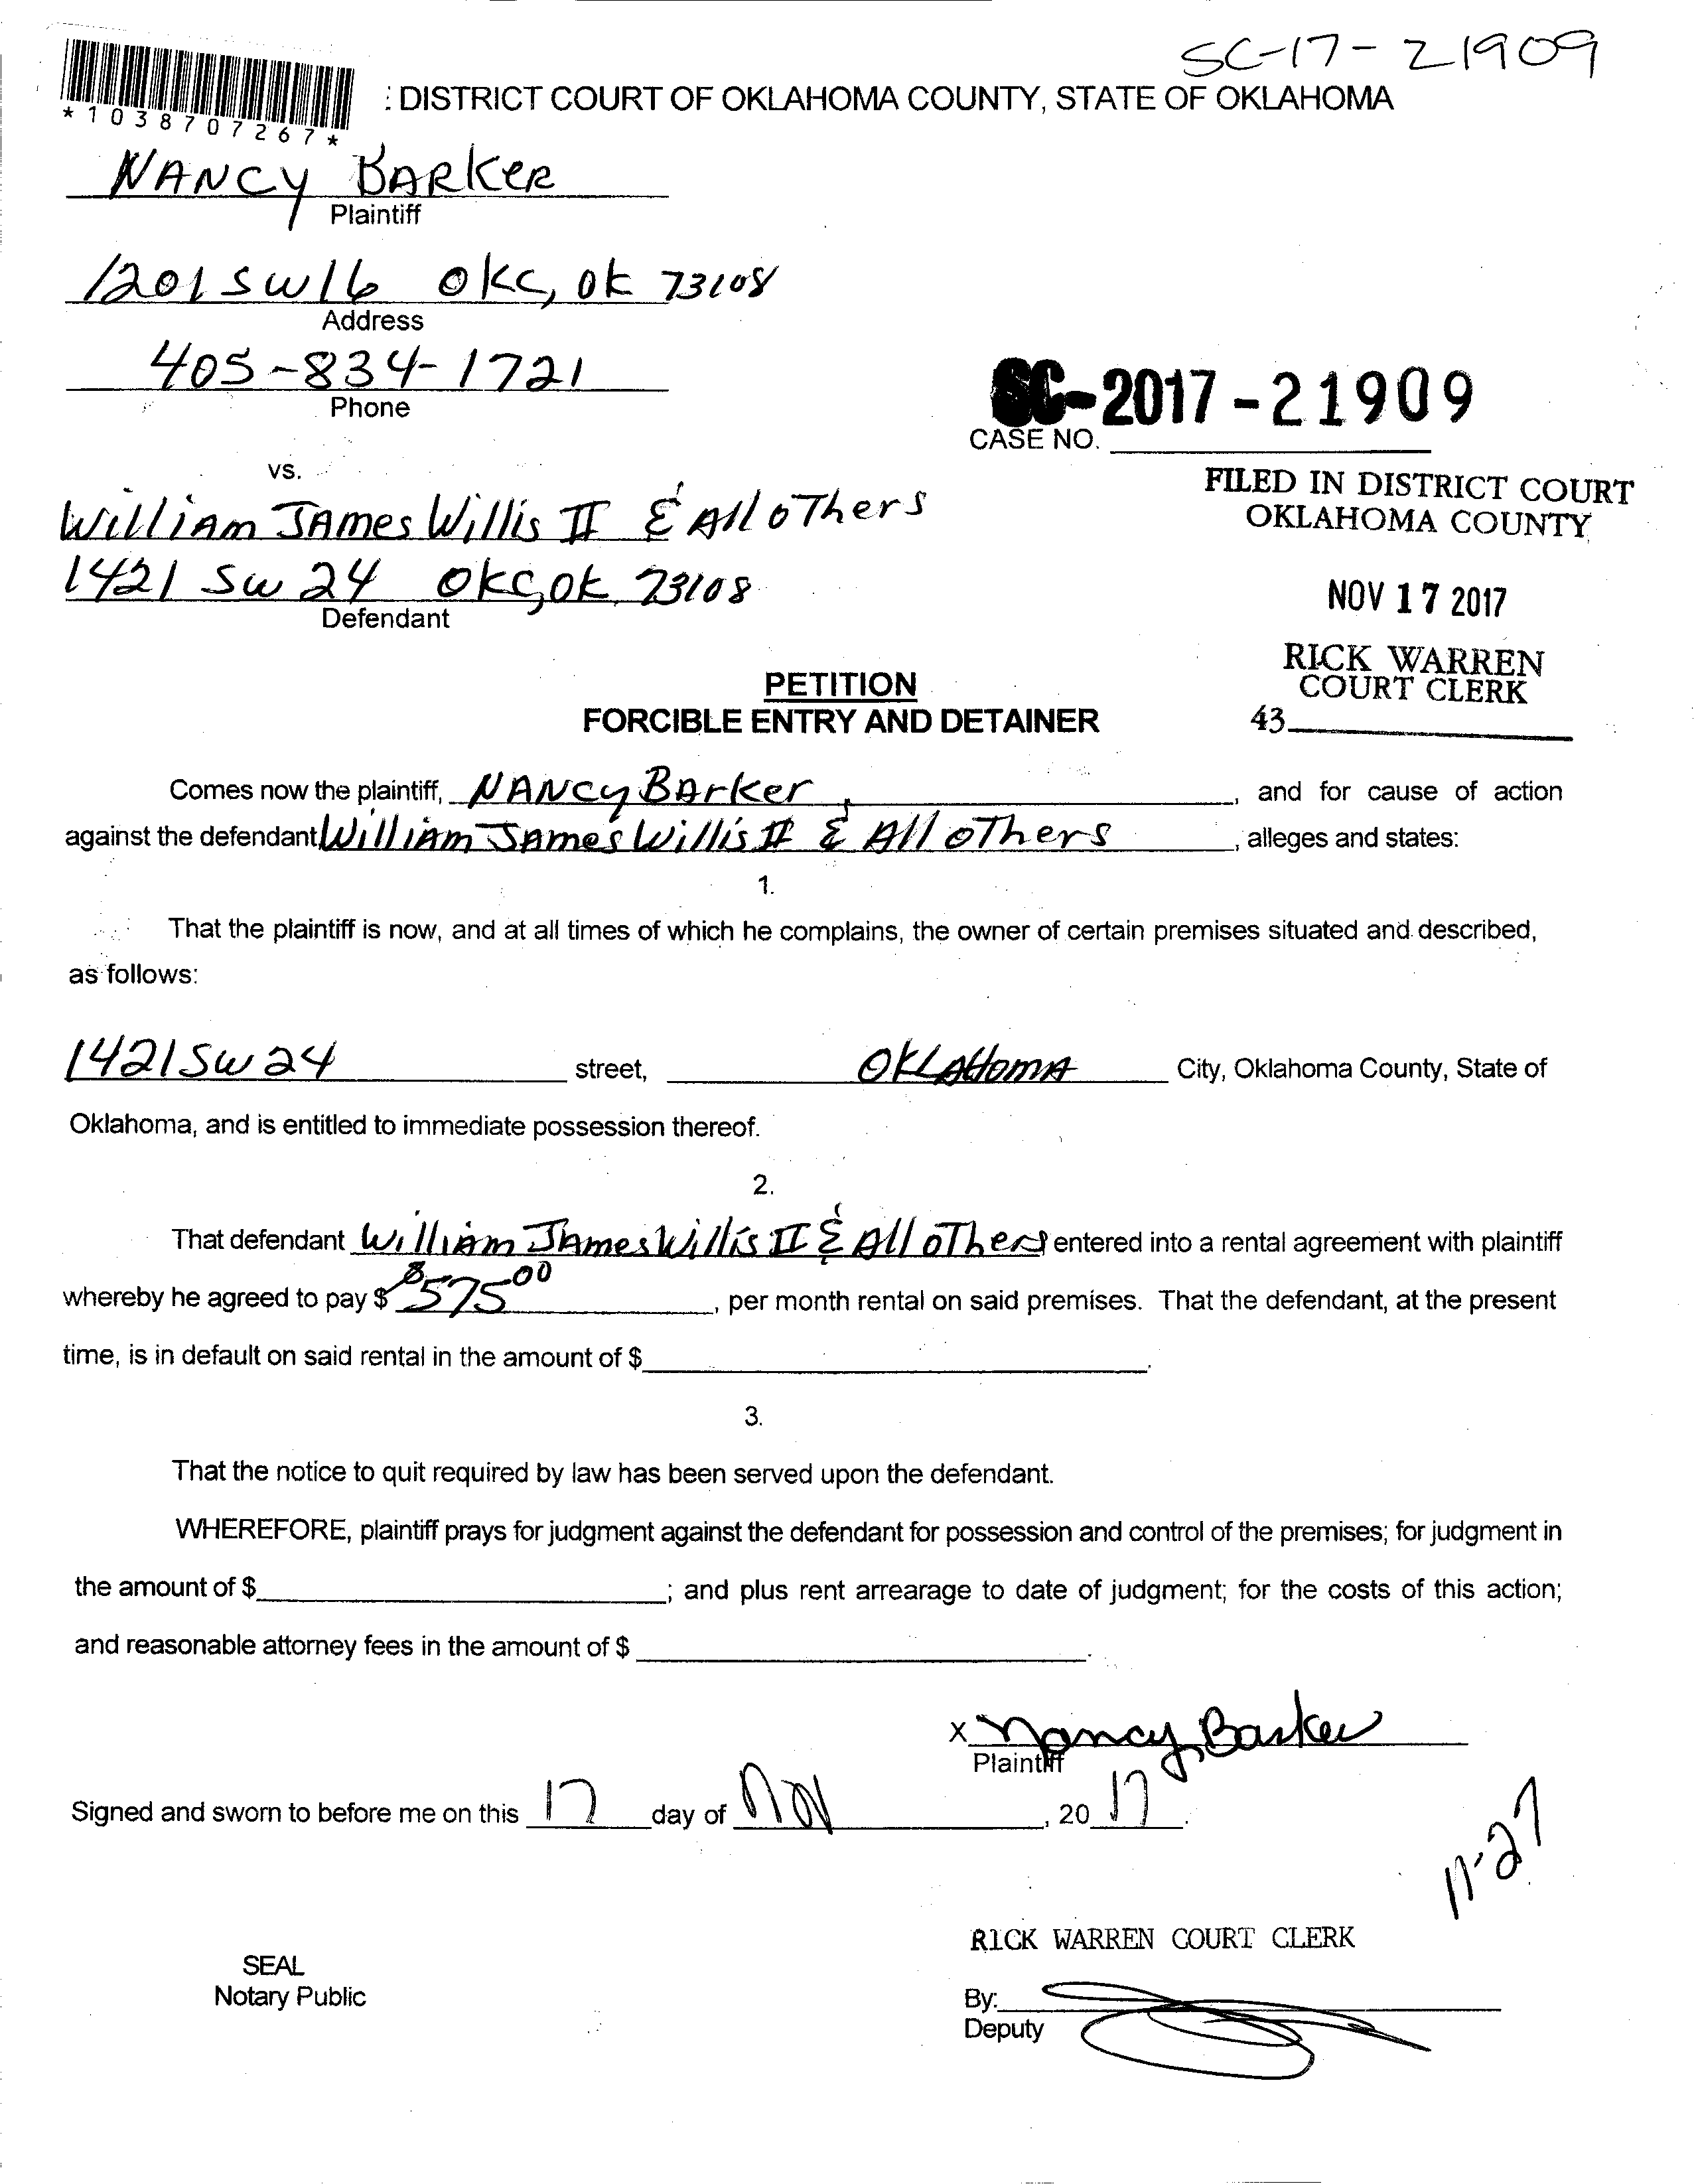 SC-17-21909
: DISTRICT COURT OF OKLAHOMA COUNTY, STATE OF OKLAHOMA
*1038707267*
NANCY BARKER
Plaintiff
1201 SW 16 OKC, OK 73108
Address
405-834-1721
Phone
SC-2017-21909
CASE NO.
vs.
FILED IN DISTRICT COURT
OKLAHOMA COUNTY
William James Willis II & All oThers
1421 SW 24 OKC, OK 73108
Defendant
NOV 17 2017
RICK WARREN
COURT CLERK
43
PETITION
FORCIBLE ENTRY AND DETAINER
Comes now the plaintiff, NANCY BArker, and for cause of action
against the defendant William James Willis II & All oThers, alleges and states:
1.
That the plaintiff is now, and at all times of which he complains, the owner of certain premises situated and described,
as follows:
1421 SW 24 street, OKLAHOMA City, Oklahoma County, State of
Oklahoma, and is entitled to immediate possession thereof.
2.
That defendant William James Willis II & All oThers entered into a rental agreement with plaintiff
whereby he agreed to pay $ $575 00, per month rental on said premises. That the defendant, at the present
time, is in default on said rental in the amount of $
3.
That the notice to quit required by law has been served upon the defendant.
WHEREFORE, plaintiff prays for judgment against the defendant for possession and control of the premises; for judgment in
the amount of $ ; and plus rent arrearage to date of judgment; for the costs of this action;
and reasonable attorney fees in the amount of $ .
X Nancy Barker
Plaintiff
Signed and sworn to before me on this 17 day of Nov, 20 17.
11-27
RICK WARREN COURT CLERK
SEAL
Notary Public
By:
Deputy